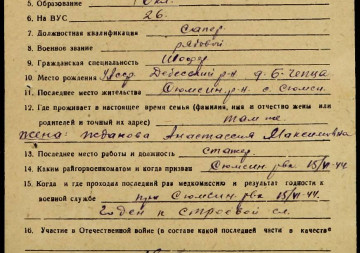 5. Образование кл.
6. На ВУС 26.
7. Должностная квалификация Сапер
8. Военное звание рядовой
9. Гражданская специальность Шофер
10. Место рождения Усср. Дебесский р-н д. Б-Чепца
11. Последнее место жительства Сюмсин р-н с. Сюмси.
12. Где проживает в настоящее время семья (фамилия, имя и отчество жены или
родителей и точный их адрес) там же
жена: Жданова Анастассия Максимовна
13. Последнее место работы и должность стажер
14. Каким райгорвоенкоматом и когда призван Сюмсин. рвк 15/VI-44.
15. Когда и где проходил последний раз медкомиссию и результат годности к
военной службе при Сюмсин. рвк 15/VI-44.
Годен к строевой сл.
16. Участие в Отечественной войне (в составе какой последней части в качестве